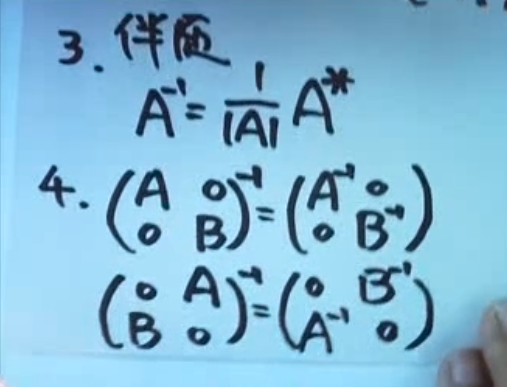 3. 伴随
A⁻¹ = 1/|A| A*
4. (A 0; 0 B)⁻¹ = (A⁻¹ 0; 0 B⁻¹)
(0 A; B 0)⁻¹ = (0 B⁻¹; A⁻¹ 0)